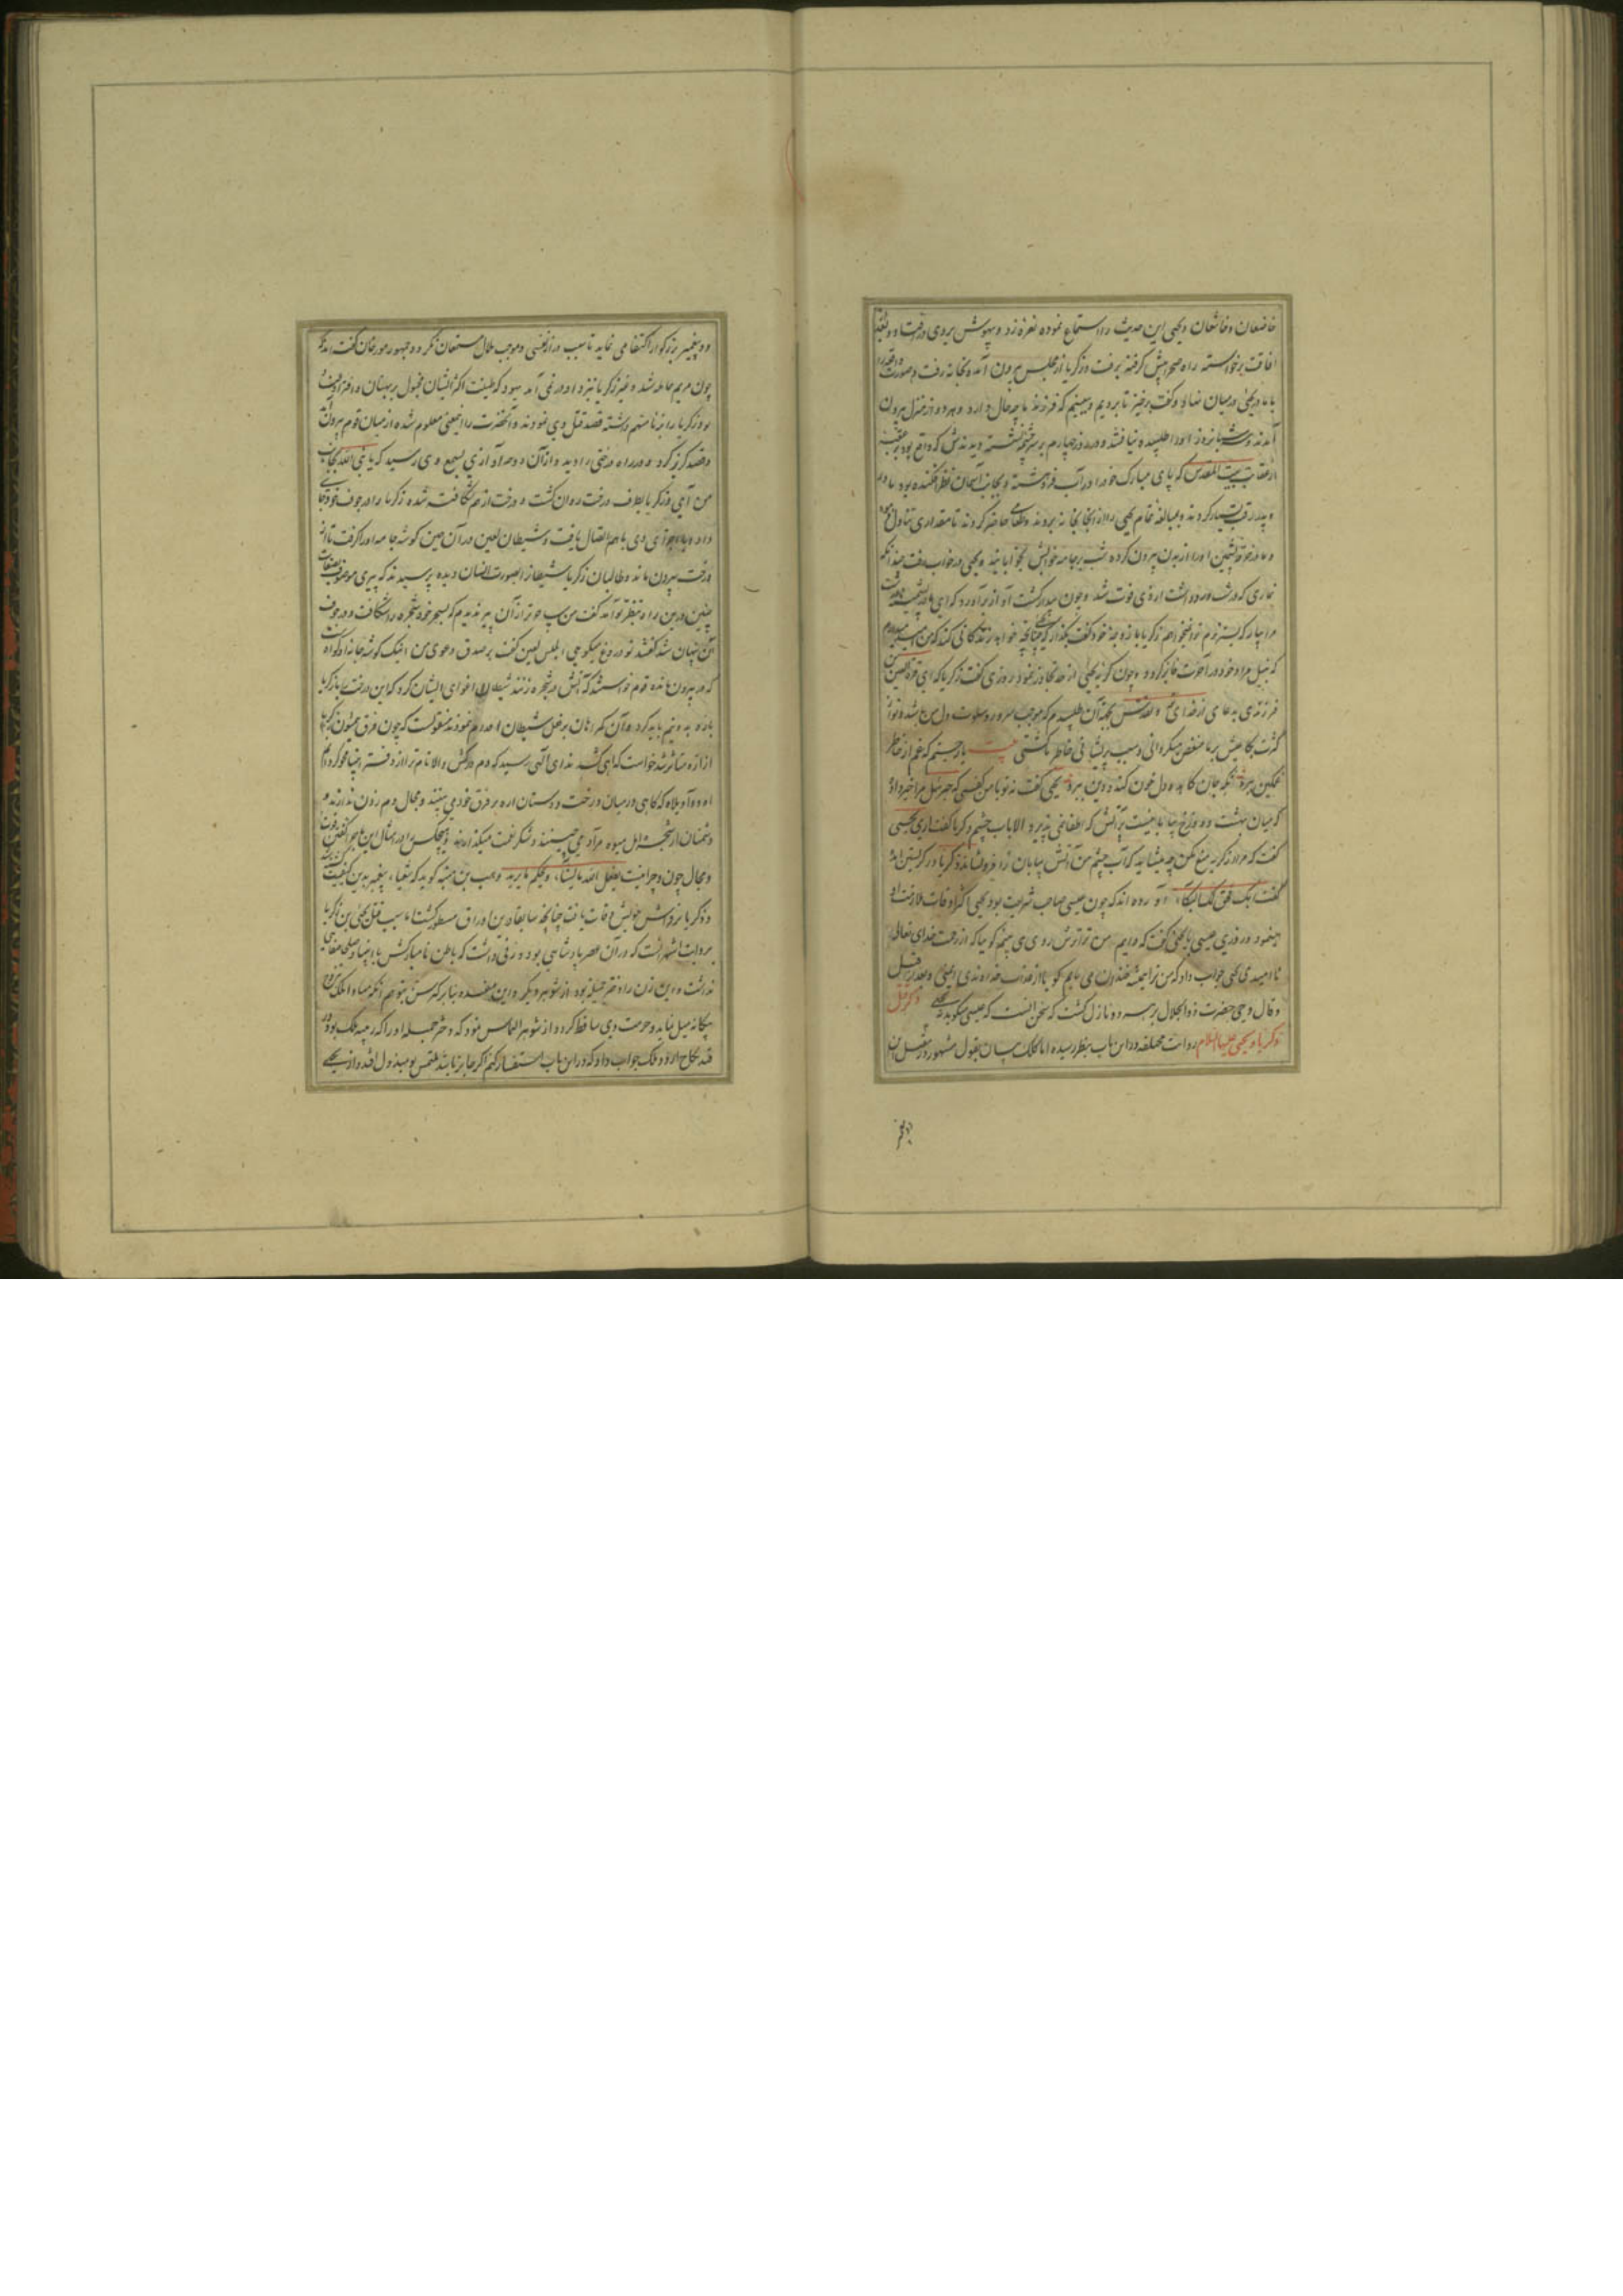 خاضعان و خاشعان و یحیی این حدیث را استماع نموده نعره زد و بیهوش بر روی در افتاد و بعد
افاقت برخواسته راه صحرا پیش گرفته برفت و زکریا از مجلس بیرون آمده بخانه رفت و صورت واقعه را
با مادر یحیی در میان نهاد و گفت برخیز تا برویم و ببینیم که فرزند ما چه حال دارد و هر دو از منزل بیرون
آمدند و سه شبانروز او را طلبیده نیافتند و در روز چهارم بر سر چشمه نشسته دیدندش که در عقبه
از عقاب بیت المقدس که پای مبارک خود را در آب فرو هشته و بجانب آسمان نظر افکنده بود مادر
و پدر رقت بسیار کردند و بمبالغه تمام یحیی را از آنجا بخانه بردند و طعامی حاضر کردند تا مقداری تناول
و مادر خرقه پشمین او را از بدن بیرون کرده شب بر جامه خوابش بخوابانید و یحیی در خواب رفت چندانکه
نمازی که در شب ورد داشت از وی فوت شد و چون بیدار گشت آواز برآورد که ای مادر پشمینه
مرا بیار که بستر نرم تو نمیخواهم زکریا با زوجه خود گفت بگذار که یحیی چنانچه خواهد زندگانی کند که من میدانم
که نیل مراد خود در آخرت فایز گردد و چون گریه یحیی از حد تجاوز نمود روزی گفت زکریا که ای قرة العین من
فرزندی بدعای از خدای و تقدس بجهة آن طلبیدم که موجب سرور و سلوت دل من باشد تو از
کثرت بکا عیش بر ما منغص میگردانی و سبب پریشانی خاطر ما گشتی بیت یار جستم که غم از خاطر
غمگین ببرد نه که جان کاهد و دل خون کند و دین ببرد یحیی گفت نه تو با من گفتی که جبرئیل مرا خبر داد
که میان بهشت و دوزخ بیابانیست پر آتش که اطفا نمی پذیرد الا باب چشم زکریا گفت آری یحیی
گفت که مرا از گریه منع مکن چه میشاید که آب چشم من آتش بیابان را فرو نشاند زکریا در گریستن آمد
گفت ابک فحق لک البکاء آورده اند که چون عیسی صاحب شریعت بود یحیی اکثر اوقات ملازمت او
مینمود و روزی عیسی با یحیی گفت که دایم من ترا ترش روی می بینم گویا که از رحمت خدای تعالی
ناامیدی یحیی جواب داد که من ترا همیشه خندان می یابم گویا از عذاب خداوندی ایمنی و بعد از قیل
و قال وحی حضرت ذوالجلال بر هر دو نازل گشت که سخن آنست که عیسی میگوید ذکر قتل
زکریا و یحیی علیهما السلام روایت مختلفه در این باب بنظر رسیده اما کلک بیان بقول مشهور در قتل این
دو پیغمبر
دو پیغمبر بزرگوار اکتفا می نماید تا سبب دراز نفسی و موجب ملال مستمعان نگردد جمهور مورخان گفته اند که
چون مریم حامله شد و غیر زکریا نزد او در نمی آمد یهود که طینت اکثر ایشان مجبول بر بهتان و افترا
بود زکریا را بزنا متهم داشته قصد قتل وی نمودند و آنحضرت را اینمعنی معلوم شده از میان قوم بیرون رفت
و قصد گریز کرد و در راه درختی را دید و از آن درخت آوازی بسمع وی رسید که یا نبی الله بجانب
من آی و زکریا بطرف درخت روان گشت و درخت از هم شکافته شده زکریا را در جوف خود جای
داد و باز اجزای وی با هم اتصال یافت و شیطان لعین در آن حین گوشه جامه او را گرفت تا از
درخت بیرون ماند و طالبان زکریا شیطان را بصورت انسان دیده پرسیدند که پیری موصوف بصفات
چنین درین راه بنظر تو آمد گفت من ساحرتر از آن پیر ندیدم که بسحر خود شجره را شکافت و در جوف
آن پنهان شد گفتند تو دروغ میگویی ابلیس لعین گفت بر صدق دعوی من اینک گوشه جامه او گواه است
که در بیرون مانده قوم خواستند که آتش در شجره زنند شیطان اغوای ایشان کرد که این درخت را با زکریا
باره بدو نیم باید کرد و آن گمراهان برحیل شیطان اقدام نمودند منقولست که چون فرق همیون زکریا
از اره متاثر شد خواست که آهی کشد ندای الهی رسید که دم درکش والا نام ترا از دفتر انبیا محو کرده آید
آه و آویلاه که گاهی در میان درخت دوستان اره بر فرق خود می بینند و مجال دم زدن ندارند و
دشمنان از شجره امل میوه مراد می چینند و شکر نعمت میگذارند و هیچکس را در امثال این ماجرا گفتن قوت
و مجال چون و چرا نیست یفعل الله ما یشاء و یحکم ما یرید وهب بن منبه گوید که شعیاء پیغمبر بدین کیفیت کشته شد
و زکریا بر فراش خویش وفات یافت چنانچه سابقا درین اوراق مسطور گشت اما سبب قتل یحیی بن زکریا
بروایت اشهر آنست که در آن عصر پادشاهی بوده و زنی داشت که باطن نامبارکش با انبیا و صلحا صفایی
نداشت و این زن را دختر جمیله بود از شوهر دیگر و این مفسده بنابر کبر سن متوهم آنکه مبادا ملک بزوجه
بیگانه میل نماید و حرمت وی ساقط گردد از شوهر التماس نمود که دختر جمیله او را که ربیبه ملک بود در
قید نکاح آرد و ملک جواب داد که در این باب استفسار کنم اگر جایز باشد ملتمس تو مبذول افتد و از یحیی